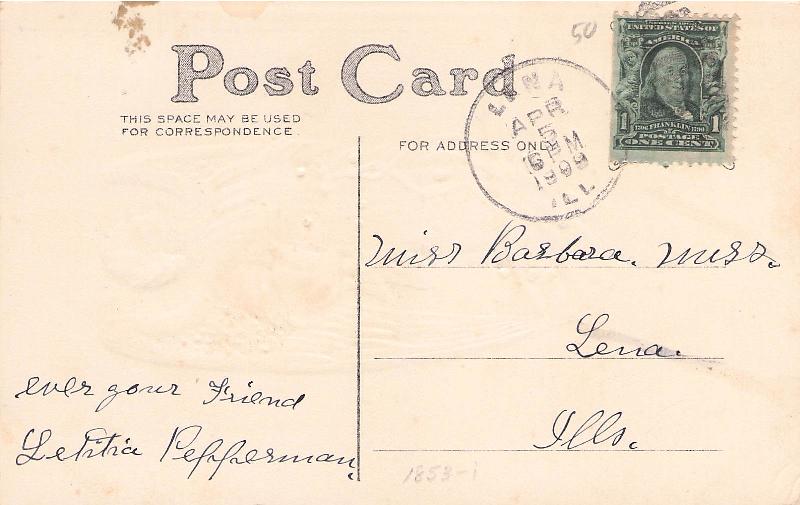 50
Post Card
THIS SPACE MAY BE USED
FOR CORRESPONDENCE.
FOR ADDRESS ONLY
LENA
APR
5
6 PM
1909
ILL.
UNITED STATES OF
AMERICA
1 1706 FRANKLIN 1790 1
POSTAGE
ONE CENT
Miss Barbara. Miss.
Lena.
Ills.
ever your Friend
Letitia Pepperman.
1853-1